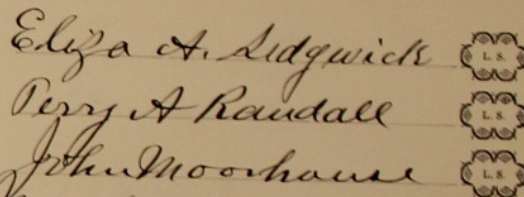 Eliza A. Sedgwick L. S.
Perry A Randall L. S.
John Moorhouse L. S.